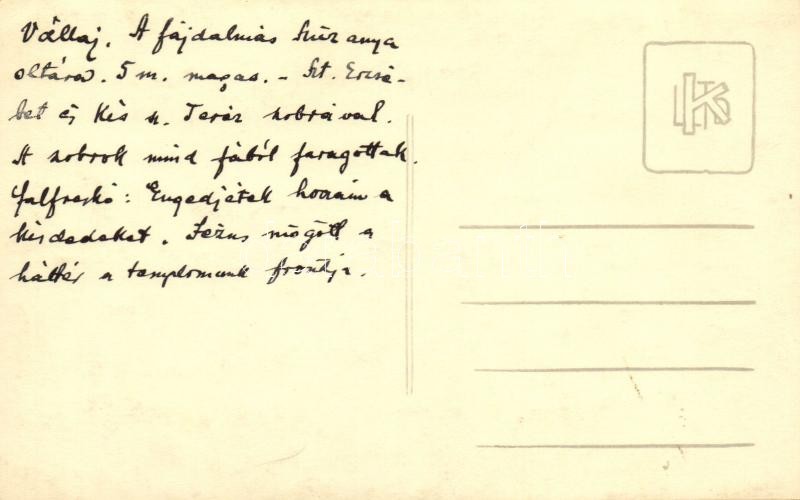 Vállaj. A fájdalmas Szűz anya
oltára. 5 m. magas. - Szt. Erzsé-
bet és Kis sz. Teréz szobrával.
A szobrok mind fából faragottak.
falfreskó: Engedjétek hozzám a
kisdedeket. Jézus mögött a
háttér a templomunk frontja.